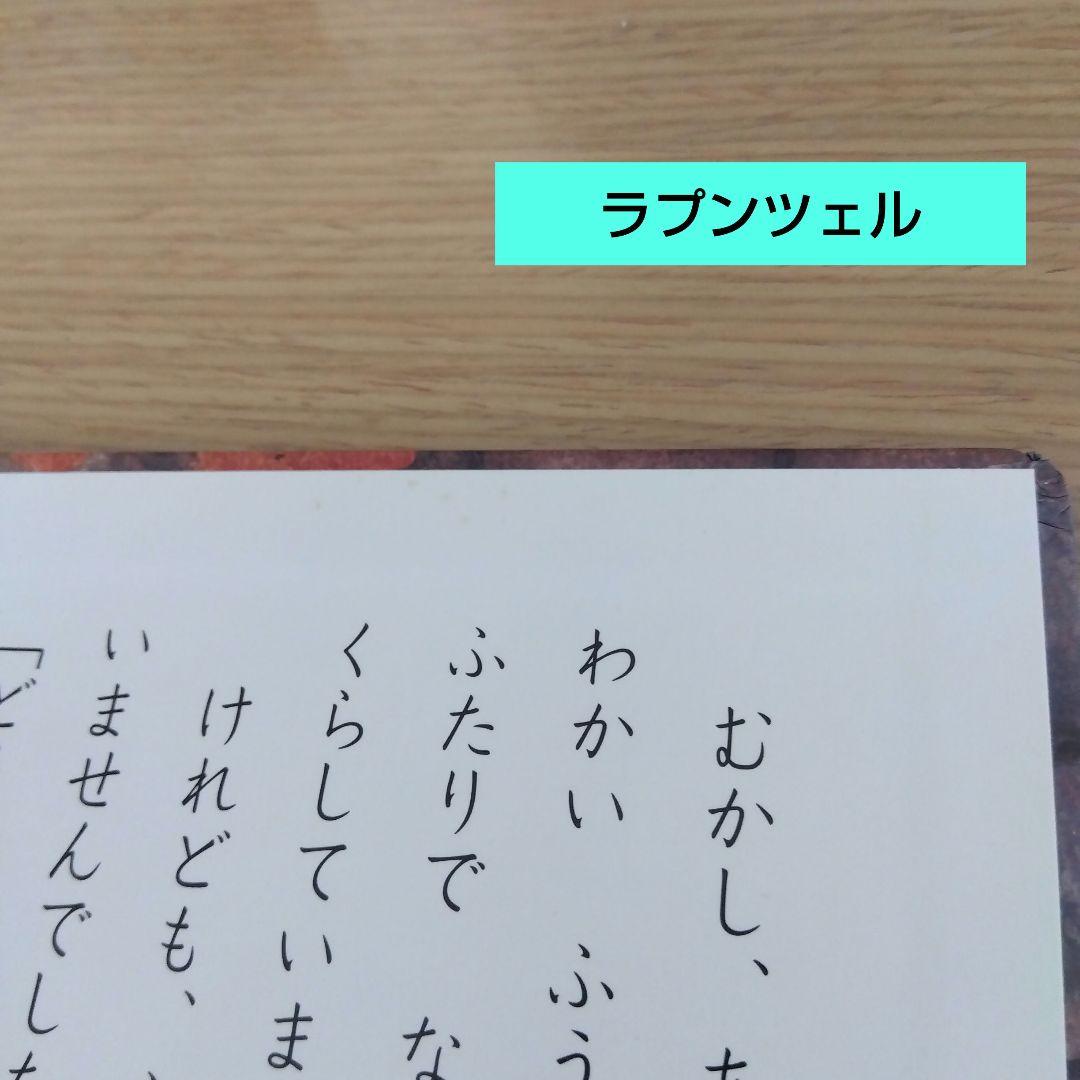 ラプンツェル
むかし、
わかい ふう
ふたりで な
くらしていま
けれども、
いませんでした
「ど